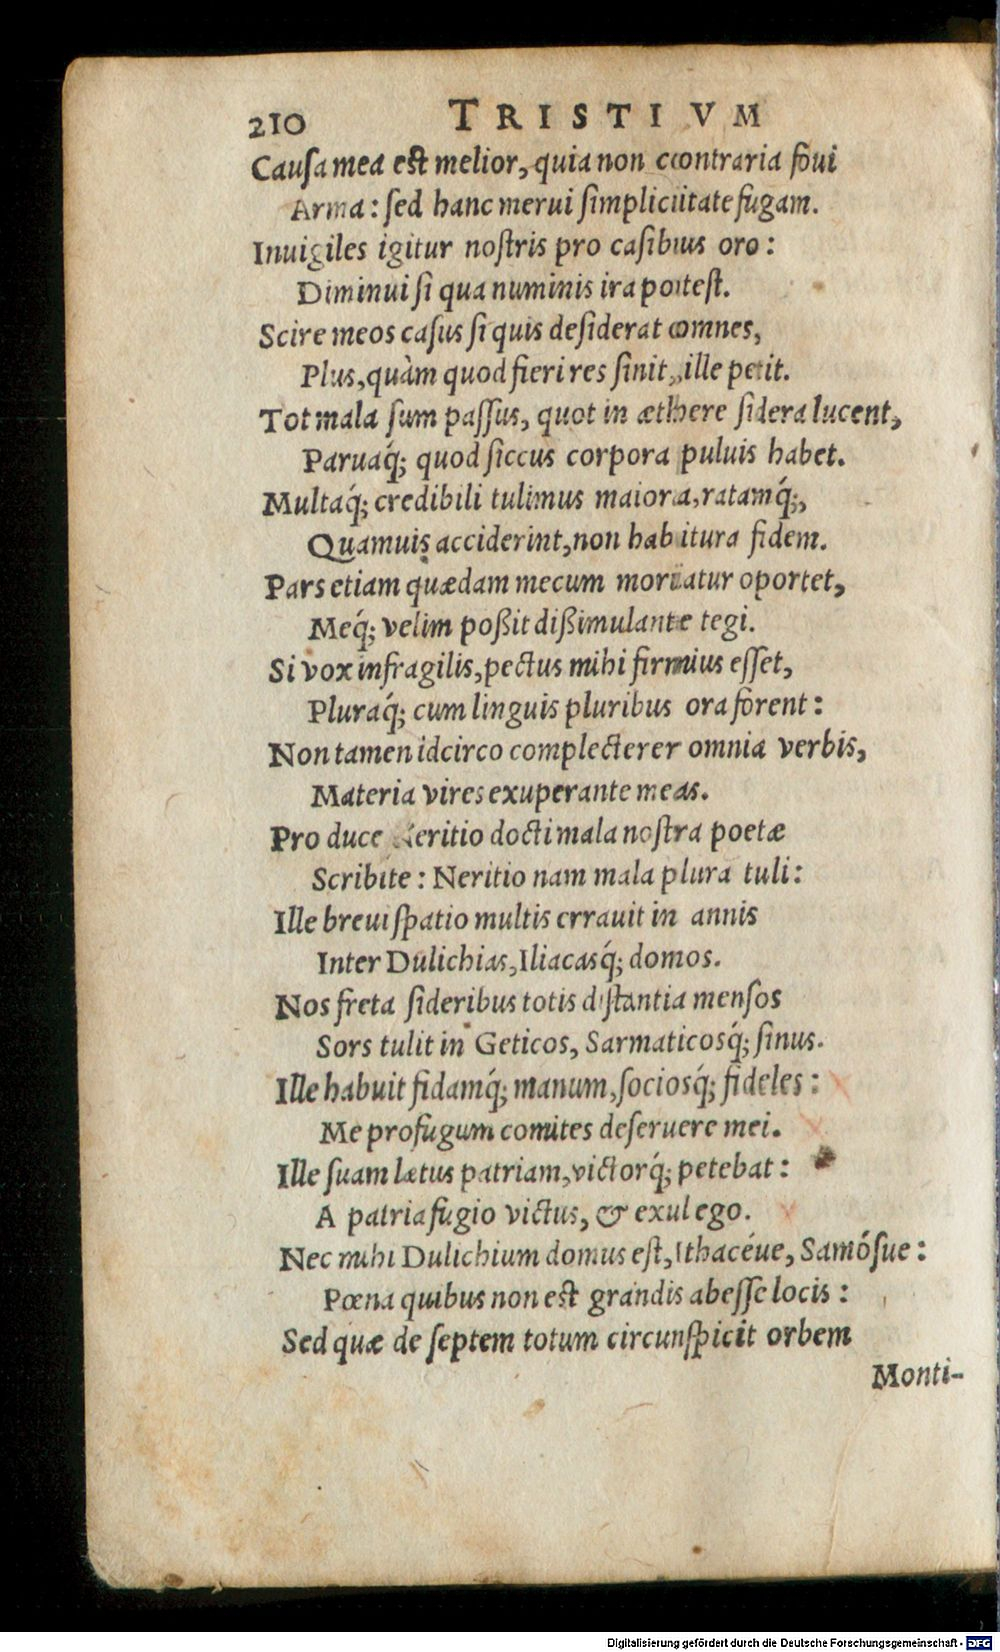 210 TRISTIVM
Cauſa mea est melior, quia non contraria foui
Arma: ſed hanc merui ſimplicitate fugam.
Inuigiles igitur noſtris pro caſibus oro:
Diminui ſi qua numinis ira poteſt.
Scire meos caſus ſi quis deſiderat omnes,
Plus, quàm quod fieri res ſinit, ille petit.
Tot mala ſum paſſus, quot in æthere ſidera lucent,
Paruaq́; quod ſiccus corpora puluis habet.
Multaq́; credibili tulimus maiora, ratamq́;,
Quamuis acciderint, non habitura fidem.
Pars etiam quædam mecum moriatur oportet,
Meq́; velim poßit dißimulante tegi.
Si vox infragilis, pectus mihi firmius eſſet,
Pluraq́; cum linguis pluribus ora forent:
Non tamen idcirco complecterer omnia verbis,
Materia vires exuperante meas.
Pro duce Neritio docti mala noſtra poetæ
Scribite: Neritio nam mala plura tuli:
Ille breui ſpatio multis errauit in annis
Inter Dulichias, Iliacasq́; domos.
Nos freta ſideribus totis diſtantia menſos
Sors tulit in Geticos, Sarmaticosq́; ſinus.
Ille habuit fidamq́; manum, ſociosq́; fideles:
Me profugum comites deſeruere mei.
Ille ſuam lætus patriam, victorq́; petebat:
A patria fugio victus, & exul ego.
Nec mihi Dulichium domus eſt, Ithacéue, Samóſue:
Pœna quibus non est grandis abeſſe locis:
Sed quæ de ſeptem totum circunſpicit orbem
Monti-
Digitalisierung gefördert durch die Deutsche Forschungsgemeinschaft - DFG